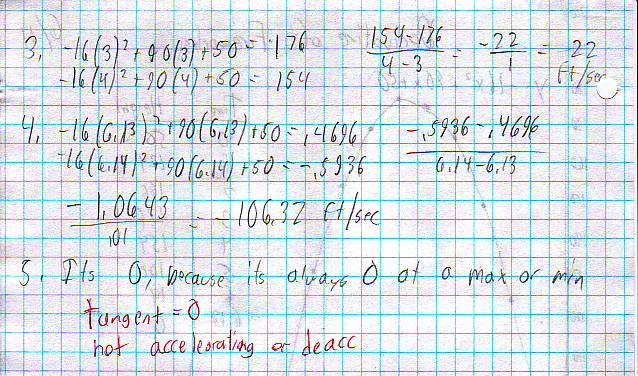 3. -16(3)² + 90(3) + 50 = 176
-16(4)² + 90(4) + 50 = 154
154-176 / 4-3 = -22 / 1 = 22 ft/sec
4. -16(6.13)² + 90(6.13) + 50 = .4696
-16(6.14)² + 90(6.14) + 50 = -.5936
-.5936 - .4696 / 6.14-6.13
-1.0643 / .01 = -106.32 ft/sec
5. Its 0, because its always 0 at a max or min
tangent = 0
not acceleorating or deacc